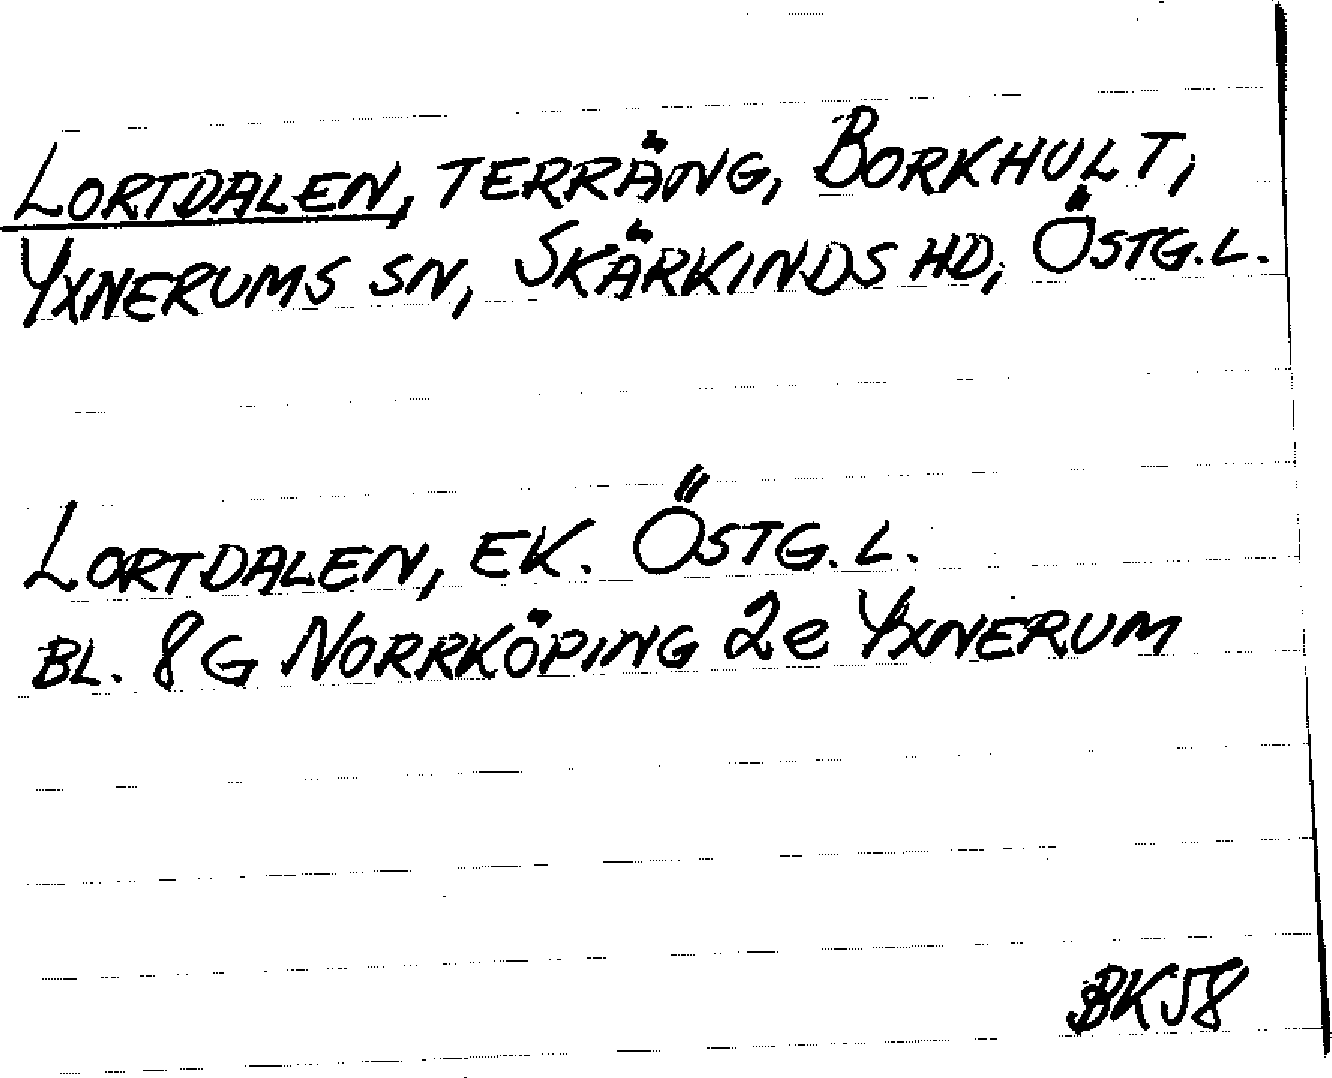 LORTDALEN, TERRÄNG, BORKHULT,
YXNERUMS SN, SKÄRKINDS HD, ÖSTG.L.
LORTDALEN, EK. ÖSTG.L.
BL. 8G NORRKÖPING 2e YXNERUM
BK58